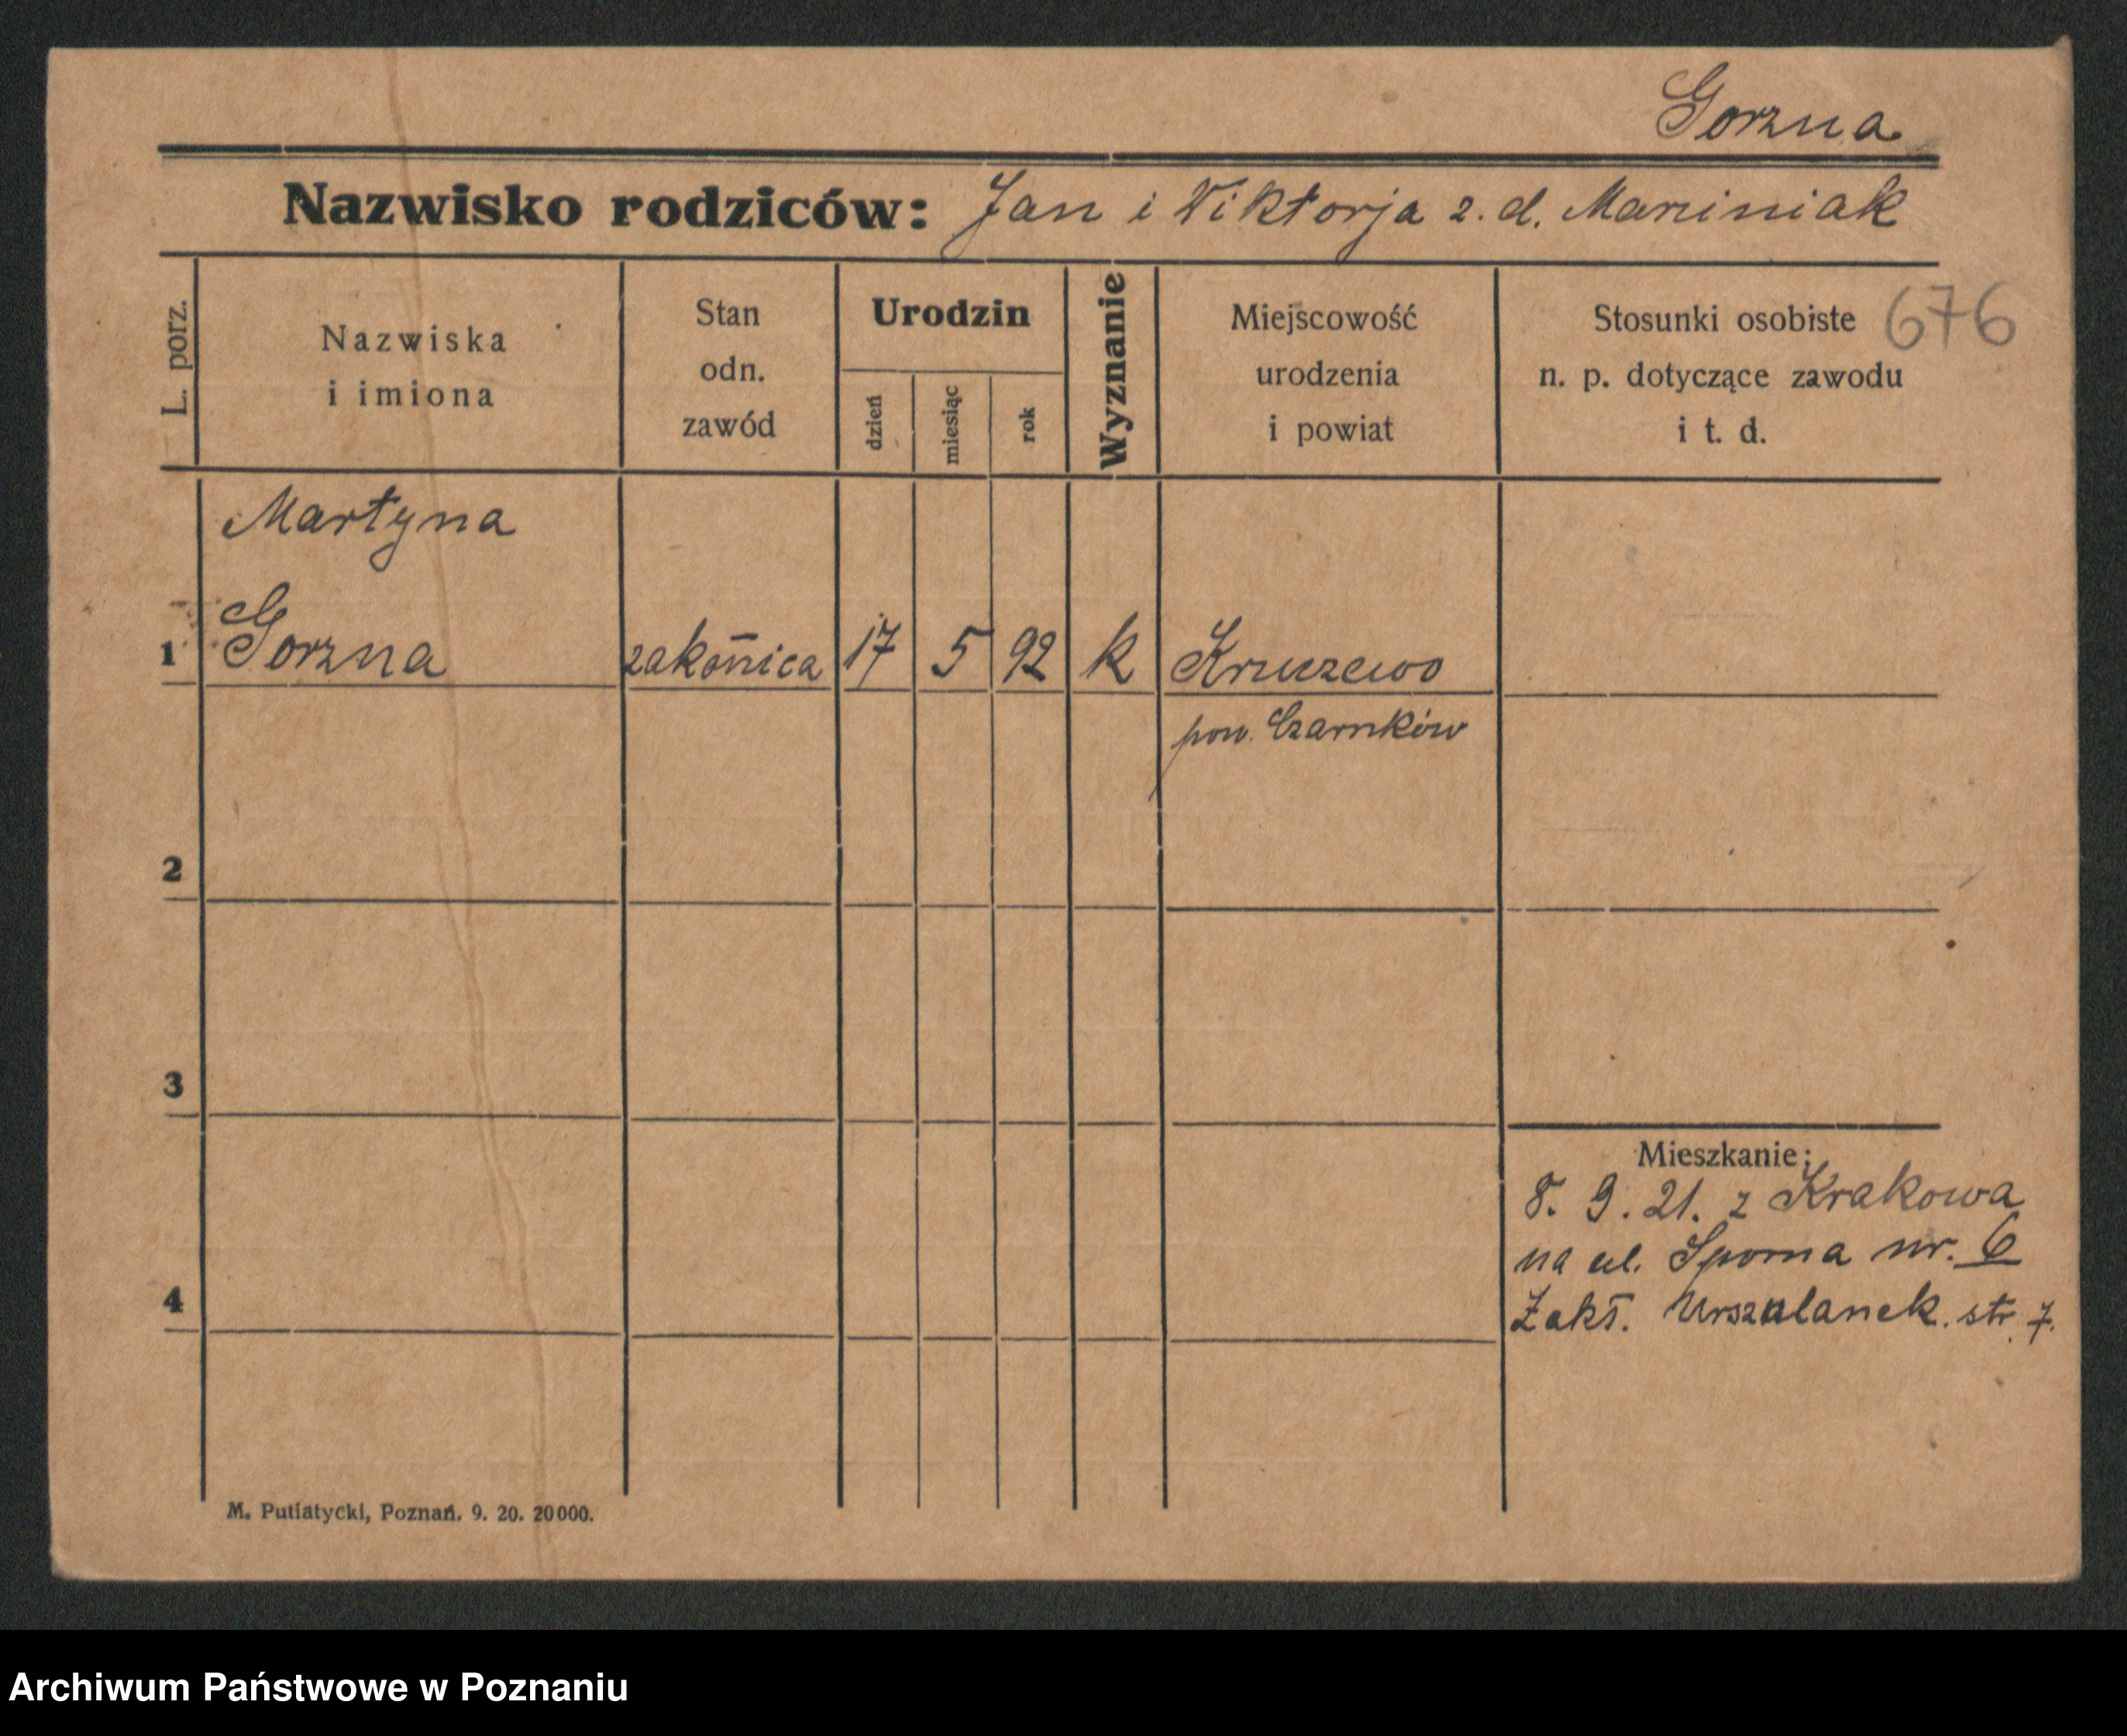 Gorzna
Nazwisko rodziców: Jan i Wiktorja z. d. Marciniak
L. porz.
Nazwiska
i imiona
Stan
odn.
zawód
Urodzin
dzień
miesiąc
rok
Wyznanie
Miejscowość
urodzenia
i powiat
Stosunki osobiste
n. p. dotyczące zawodu
i t. d.
676
Martyna
1 Gorzna zakonnica 17 5 92 k Kruczewo
pow. Czarnków
2
3
Mieszkanie:
8. 9. 21. z Krakowa
na ul. Sporna nr. 6
4 Zakł. Urszulanek. str. 7.
M. Putiatycki, Poznań. 9. 20. 20000.
Archiwum Państwowe w Poznaniu